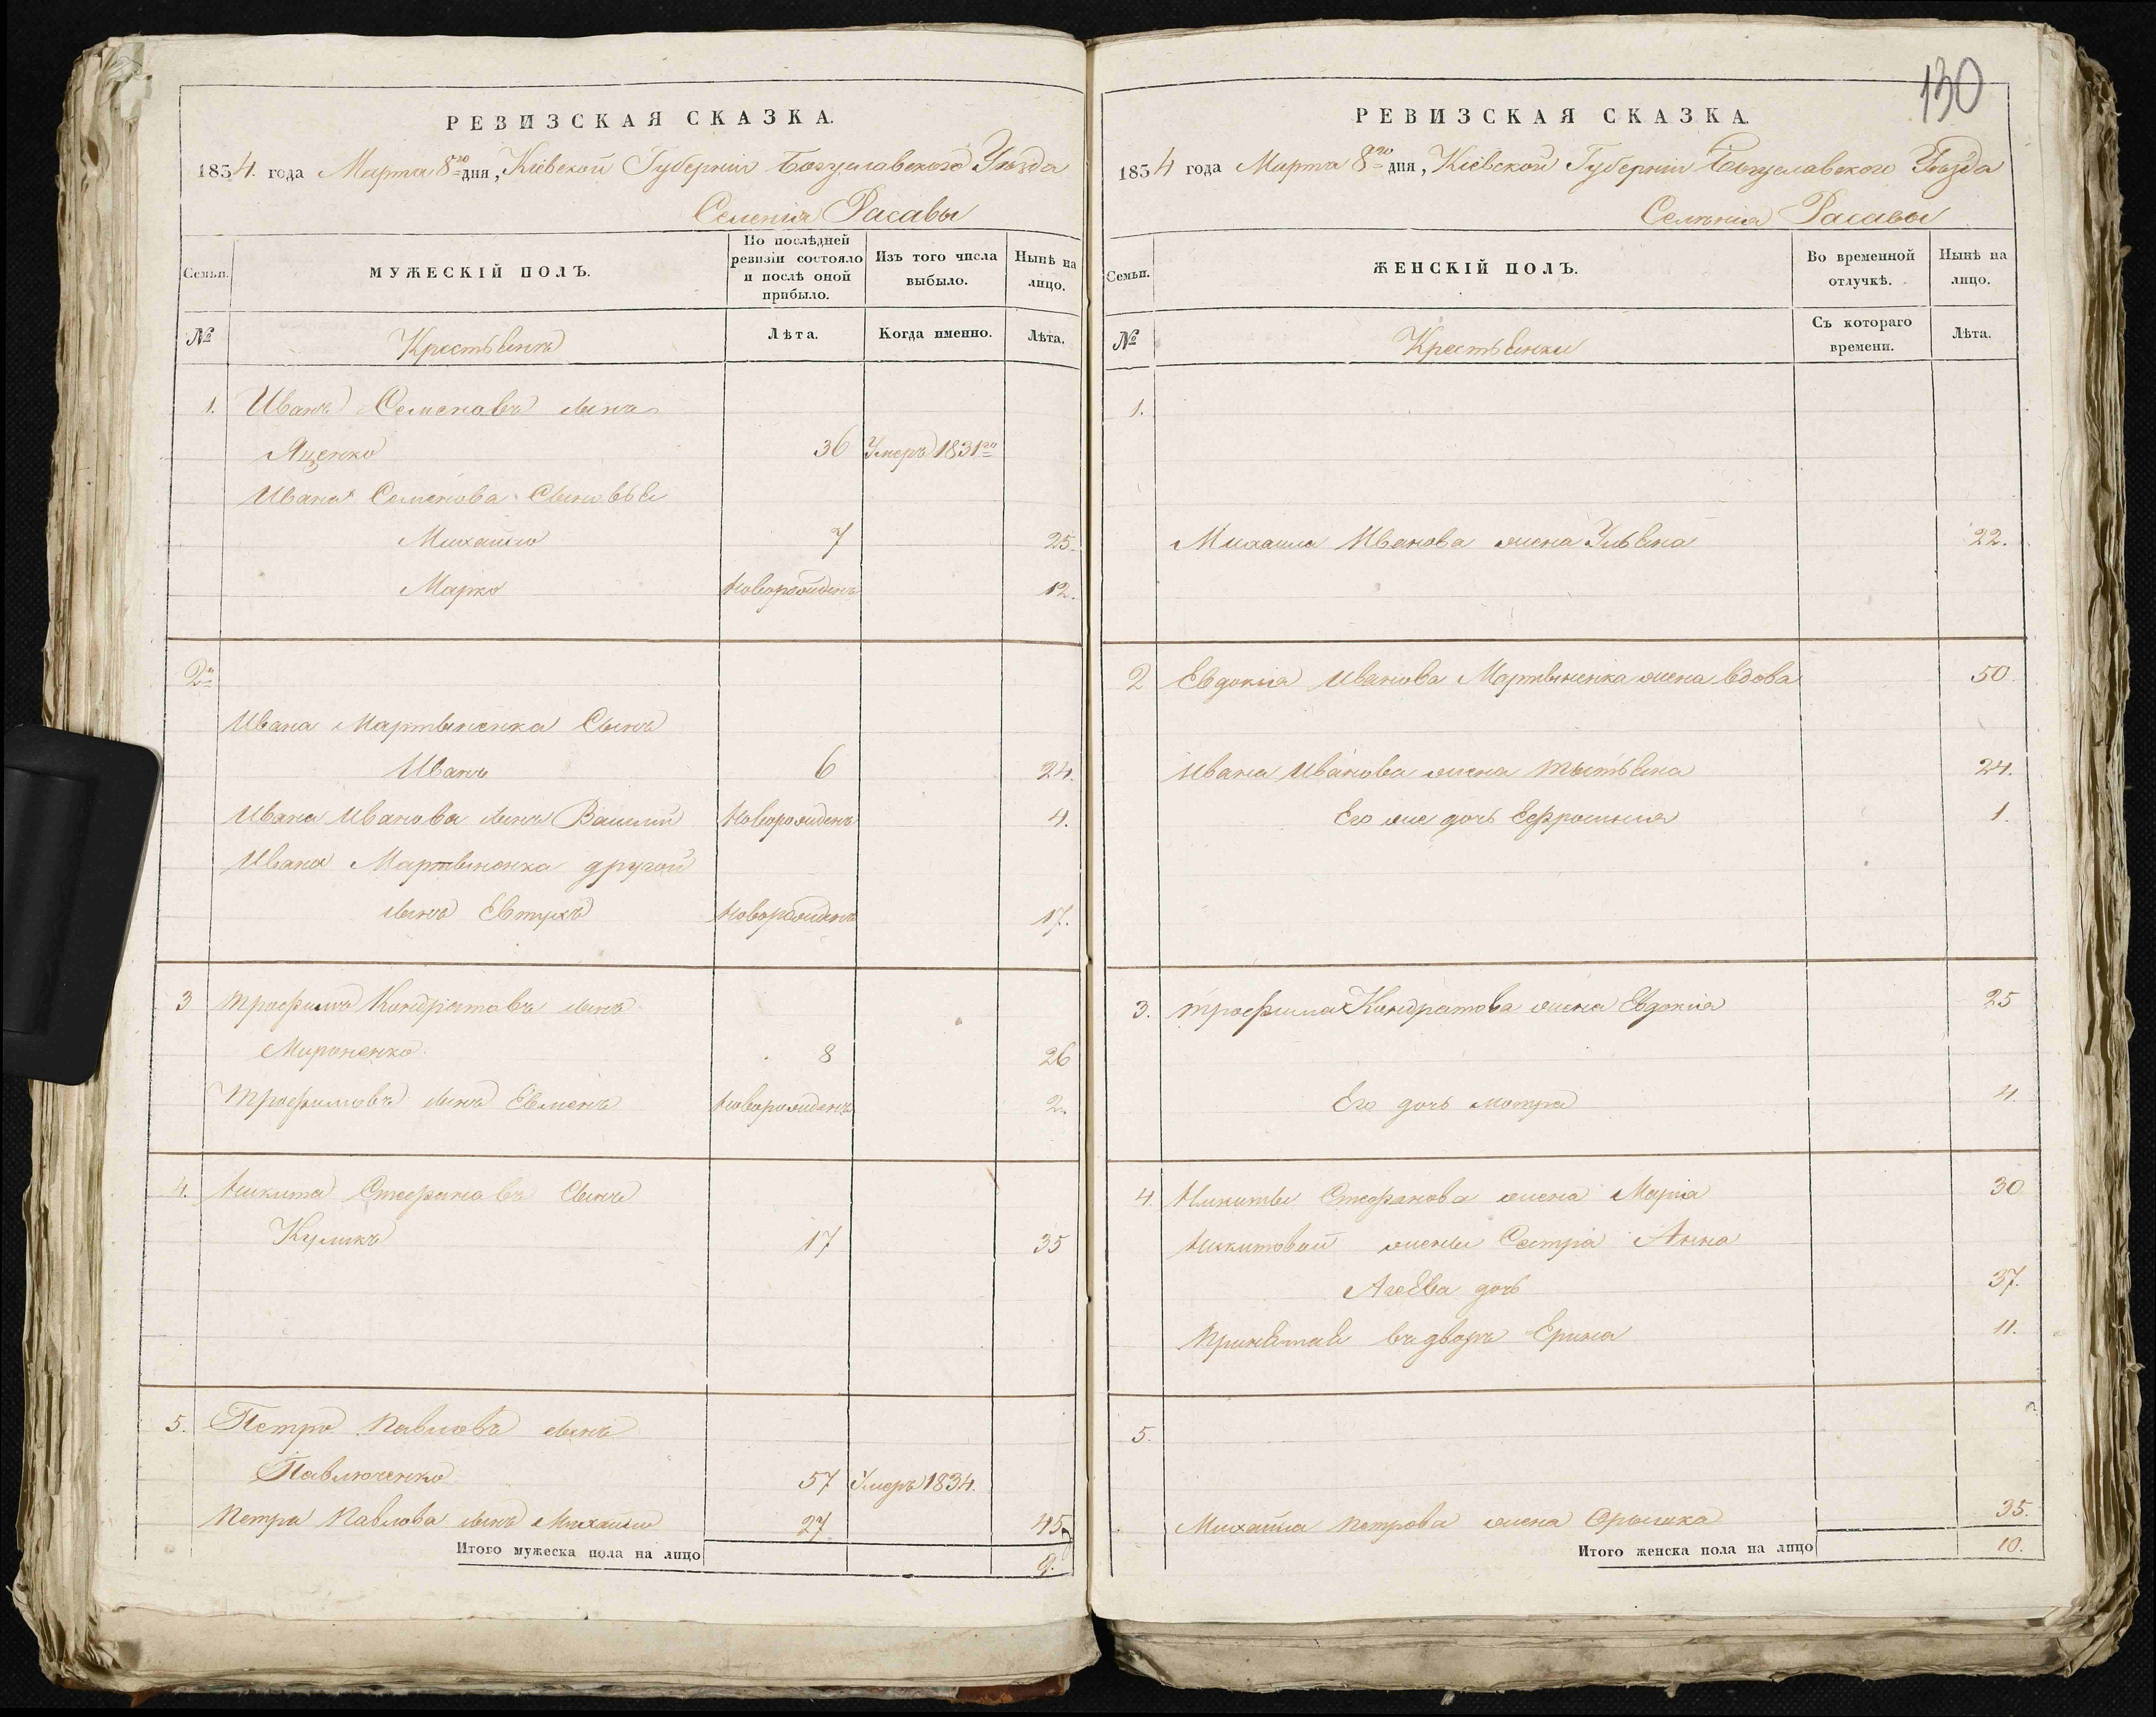 130
РЕВИЗСКАЯ СКАЗКА.
1854. года Марта 8го дня, Кіевской Губерніи Богуславского Уѣзда
Селенія Расавы
Семьи.
МУЖЕСКІЙ ПОЛЪ.
По послѣдней ревизіи состояло и послѣ оной прибыло.
Изъ того числа выбыло.
Нынѣ на лицо.
№
Крестьяне
Лѣта.
Когда именно.
Лѣта.
1. Иванъ Семеновъ сынъ
Яценко 36 Умеръ 1831го
Ивана Семенова Сыновья
Михайло 7 25.
Марко новорожденъ 12.
2й
Ивана Мартыненка Сынъ
Иванъ 6 24.
Ивана Иванова сынъ Василий Новорожденъ 4.
Ивана Мартыненка другой
сынъ Евтухъ новорожденъ 17.
3 трофимъ Кондратовъ сынъ
Мироненко 8 26
трофимовъ сынъ Евменъ новорожденъ 2.
4. Никита Стефановъ Сынъ
Куликъ 17 35
5. Петро Павловъ сынъ
Павлюченко 57 Умеръ 1834.
Петра Павлова сынъ Михайло 27 45
Итого мужеска пола на лицо 9.
РЕВИЗСКАЯ СКАЗКА.
1854 года Марта 8го дня, Кіевской Губерніи Богуславского Уѣзда
Селенія Расавы
Семьи.
ЖЕНСКІЙ ПОЛЪ.
Во временной отлучкѣ.
Нынѣ на лицо.
№
Крестьянки
Съ котораго времени.
Лѣта.
1.
Михаила Иванова жена Ульяна 22.
2 Евдокия Иванова Мартыненка жена вдова 50
Ивана Иванова жена татьяна 24.
Его же дочь Ефросиния 1.
3. трофима Кондратова жена Евдокия 25
Его дочь мотра 4.
4. Никиты Стефанова жена Мария 30
Никитовой жены Сестра Анна
Агеева дочь 37.
Принятая въ дворъ Ерина 11.
5.
Михайла Петрова жена Орышка 35.
Итого женска пола на лицо 10.